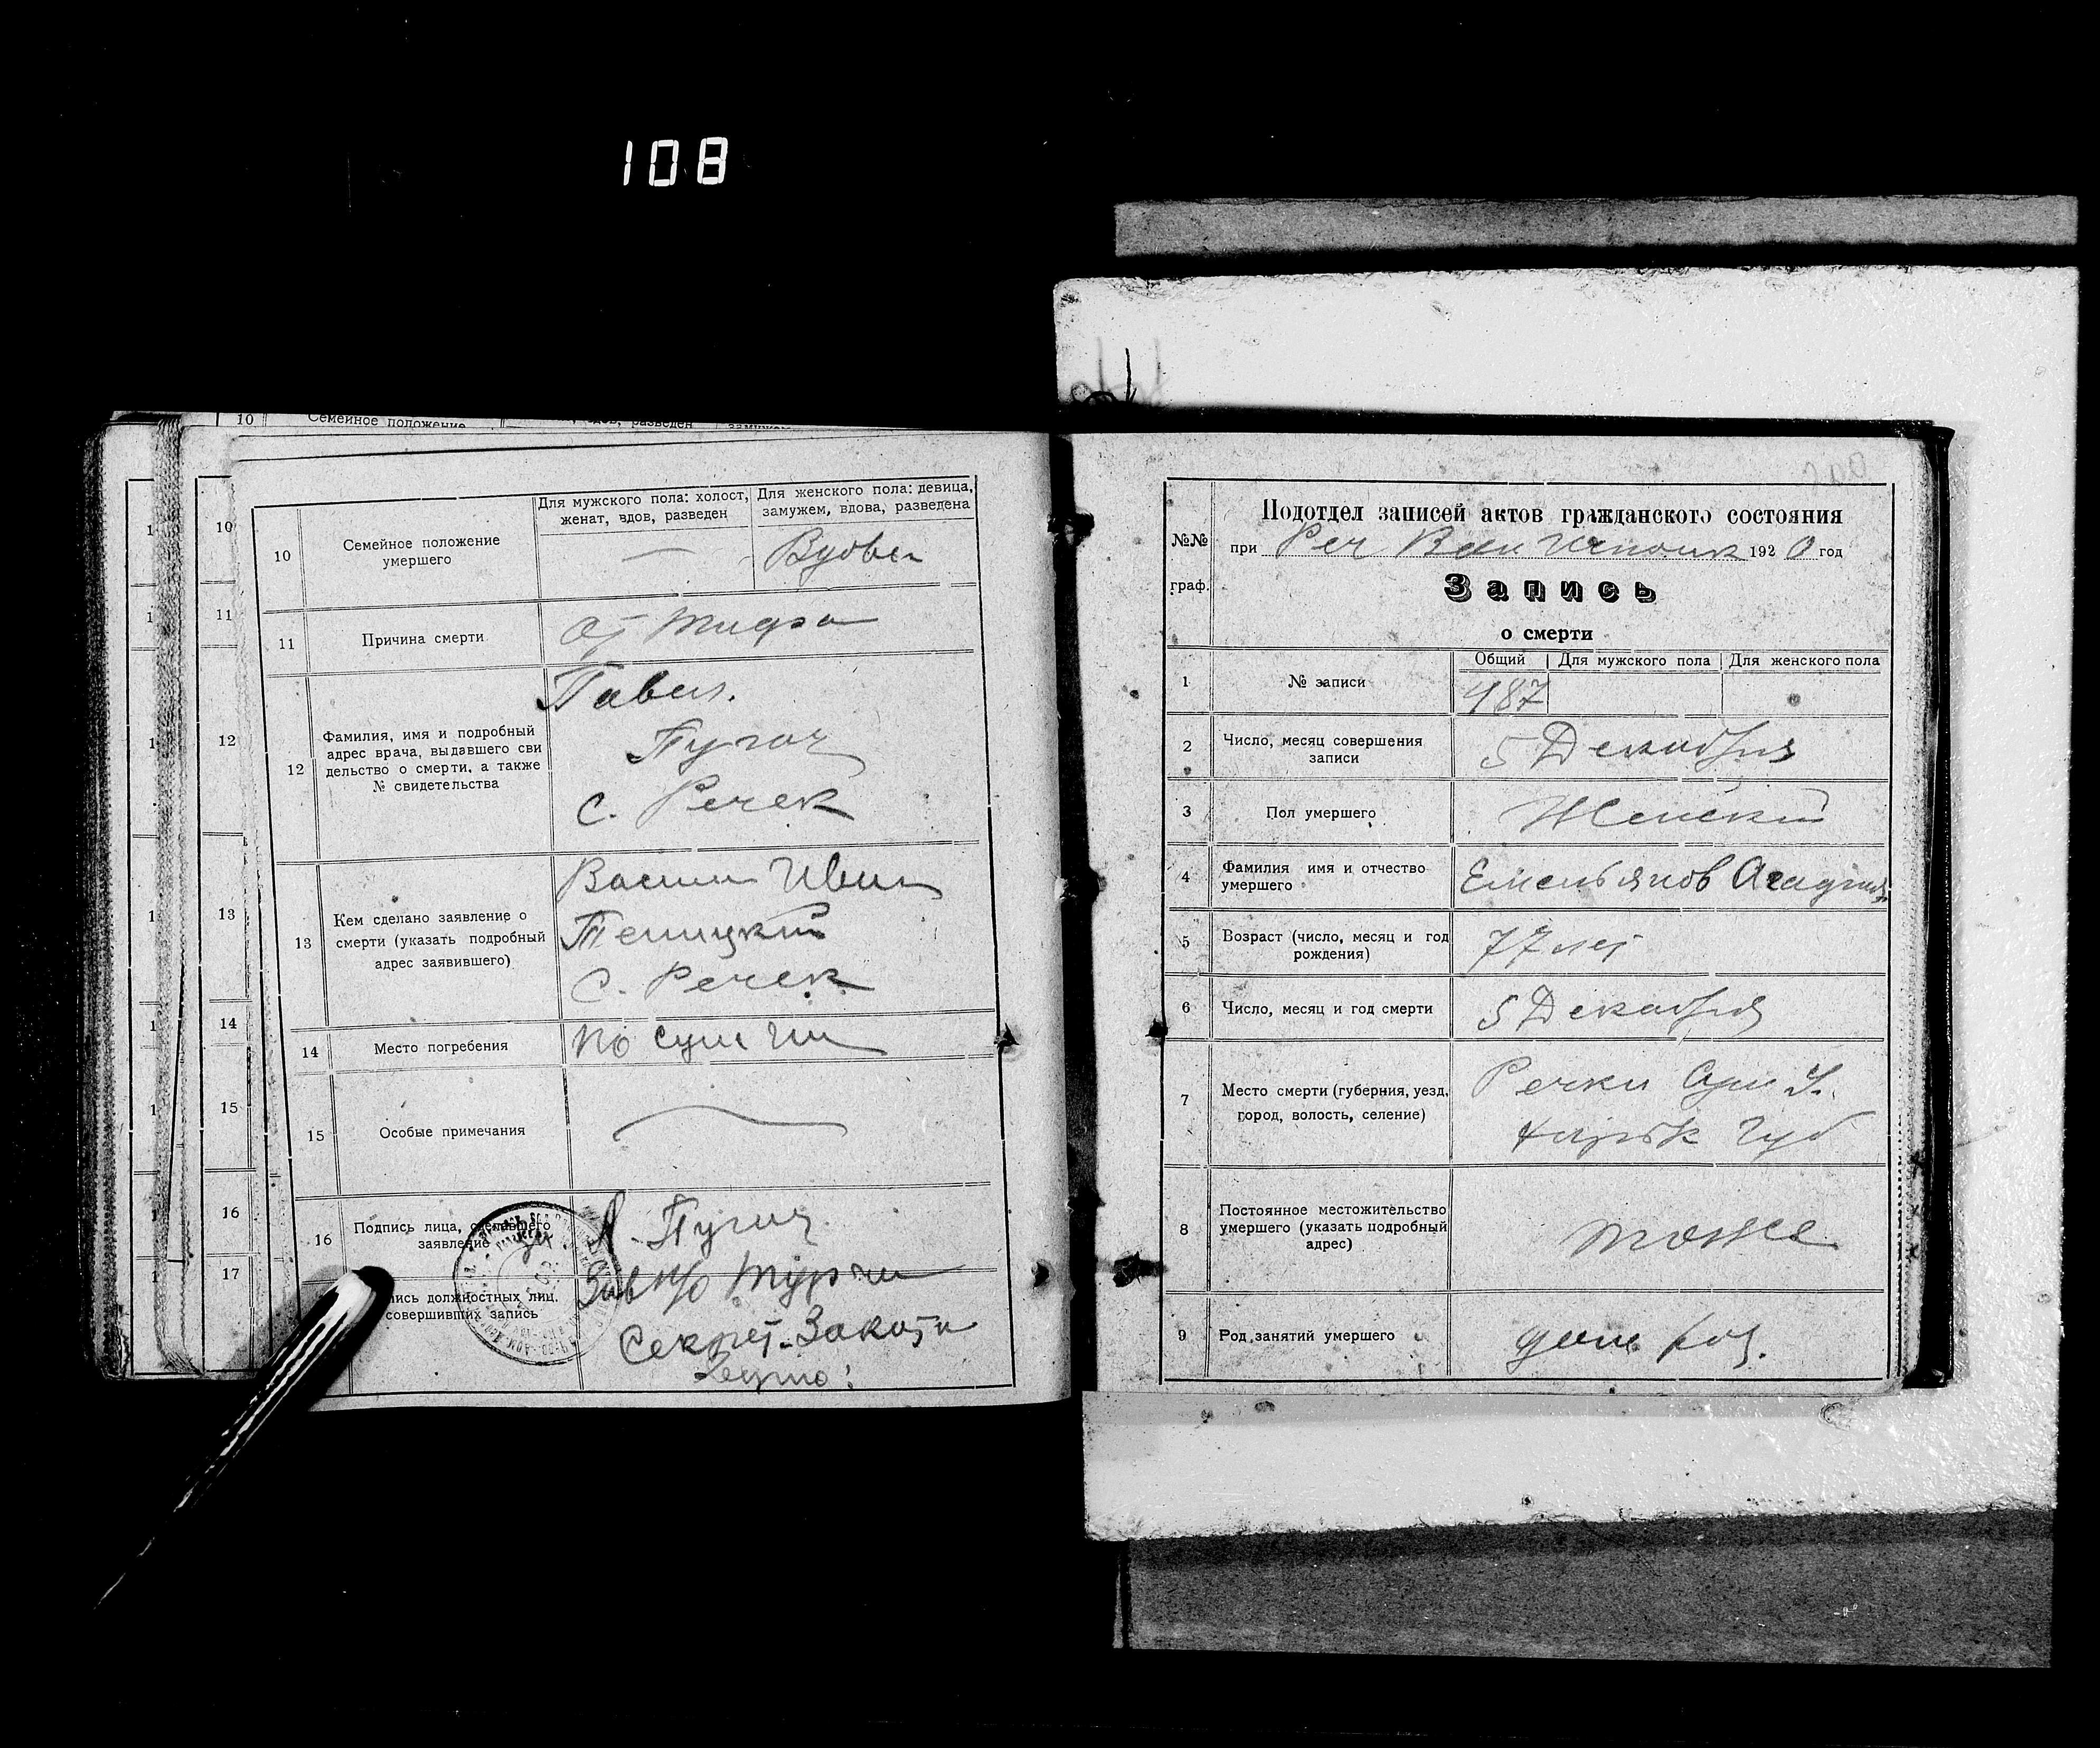 108
10 Семейное положение
10
11
12
13
14
15
16
17
10 Семейное положение умершего
Для мужского пола: холост, женат, вдов, разведен
Для женского пола: девица, замужем, вдова, разведена
— Вдова
11 Причина смерти
От тифа
12 Фамилия, имя и подробный
адрес врача, выдавшего сви
дельство о смерти, а также
№ свидетельства
Павел.
Пугач
С. Речек
13 Кем сделано заявление о
смерти (указать подробный
адрес заявившего)
Васили Иван
С. Речек
14 Место погребения
15 Особые примечания
16 Подпись лица, сделавшего
заявление
Пугач
лись должностных лиц.
совершивших запись
Секрет.
№№ граф.
Подотдел записей актов гражданского состояния
при Реч Вол Исполк 1920 год
Запись
о смерти
Общий Для мужского пола Для женского пола
1 № записи 487
2 Число, месяц совершения
записи
5 Декабря
3 Пол умершего Женский
4 Фамилия имя и отчество
умершего
Емельянов
5 Возраст (число, месяц и год
рождения)
77 лет
6 Число, месяц и год смерти 5 Декабря
7 Место смерти (губерния, уезд,
город, волость, селение)
Речки Сум У.
Харьк Губ
8 Постоянное местожительство
умершего (указать подробный
адрес)
тоже
9 Род занятий умершего